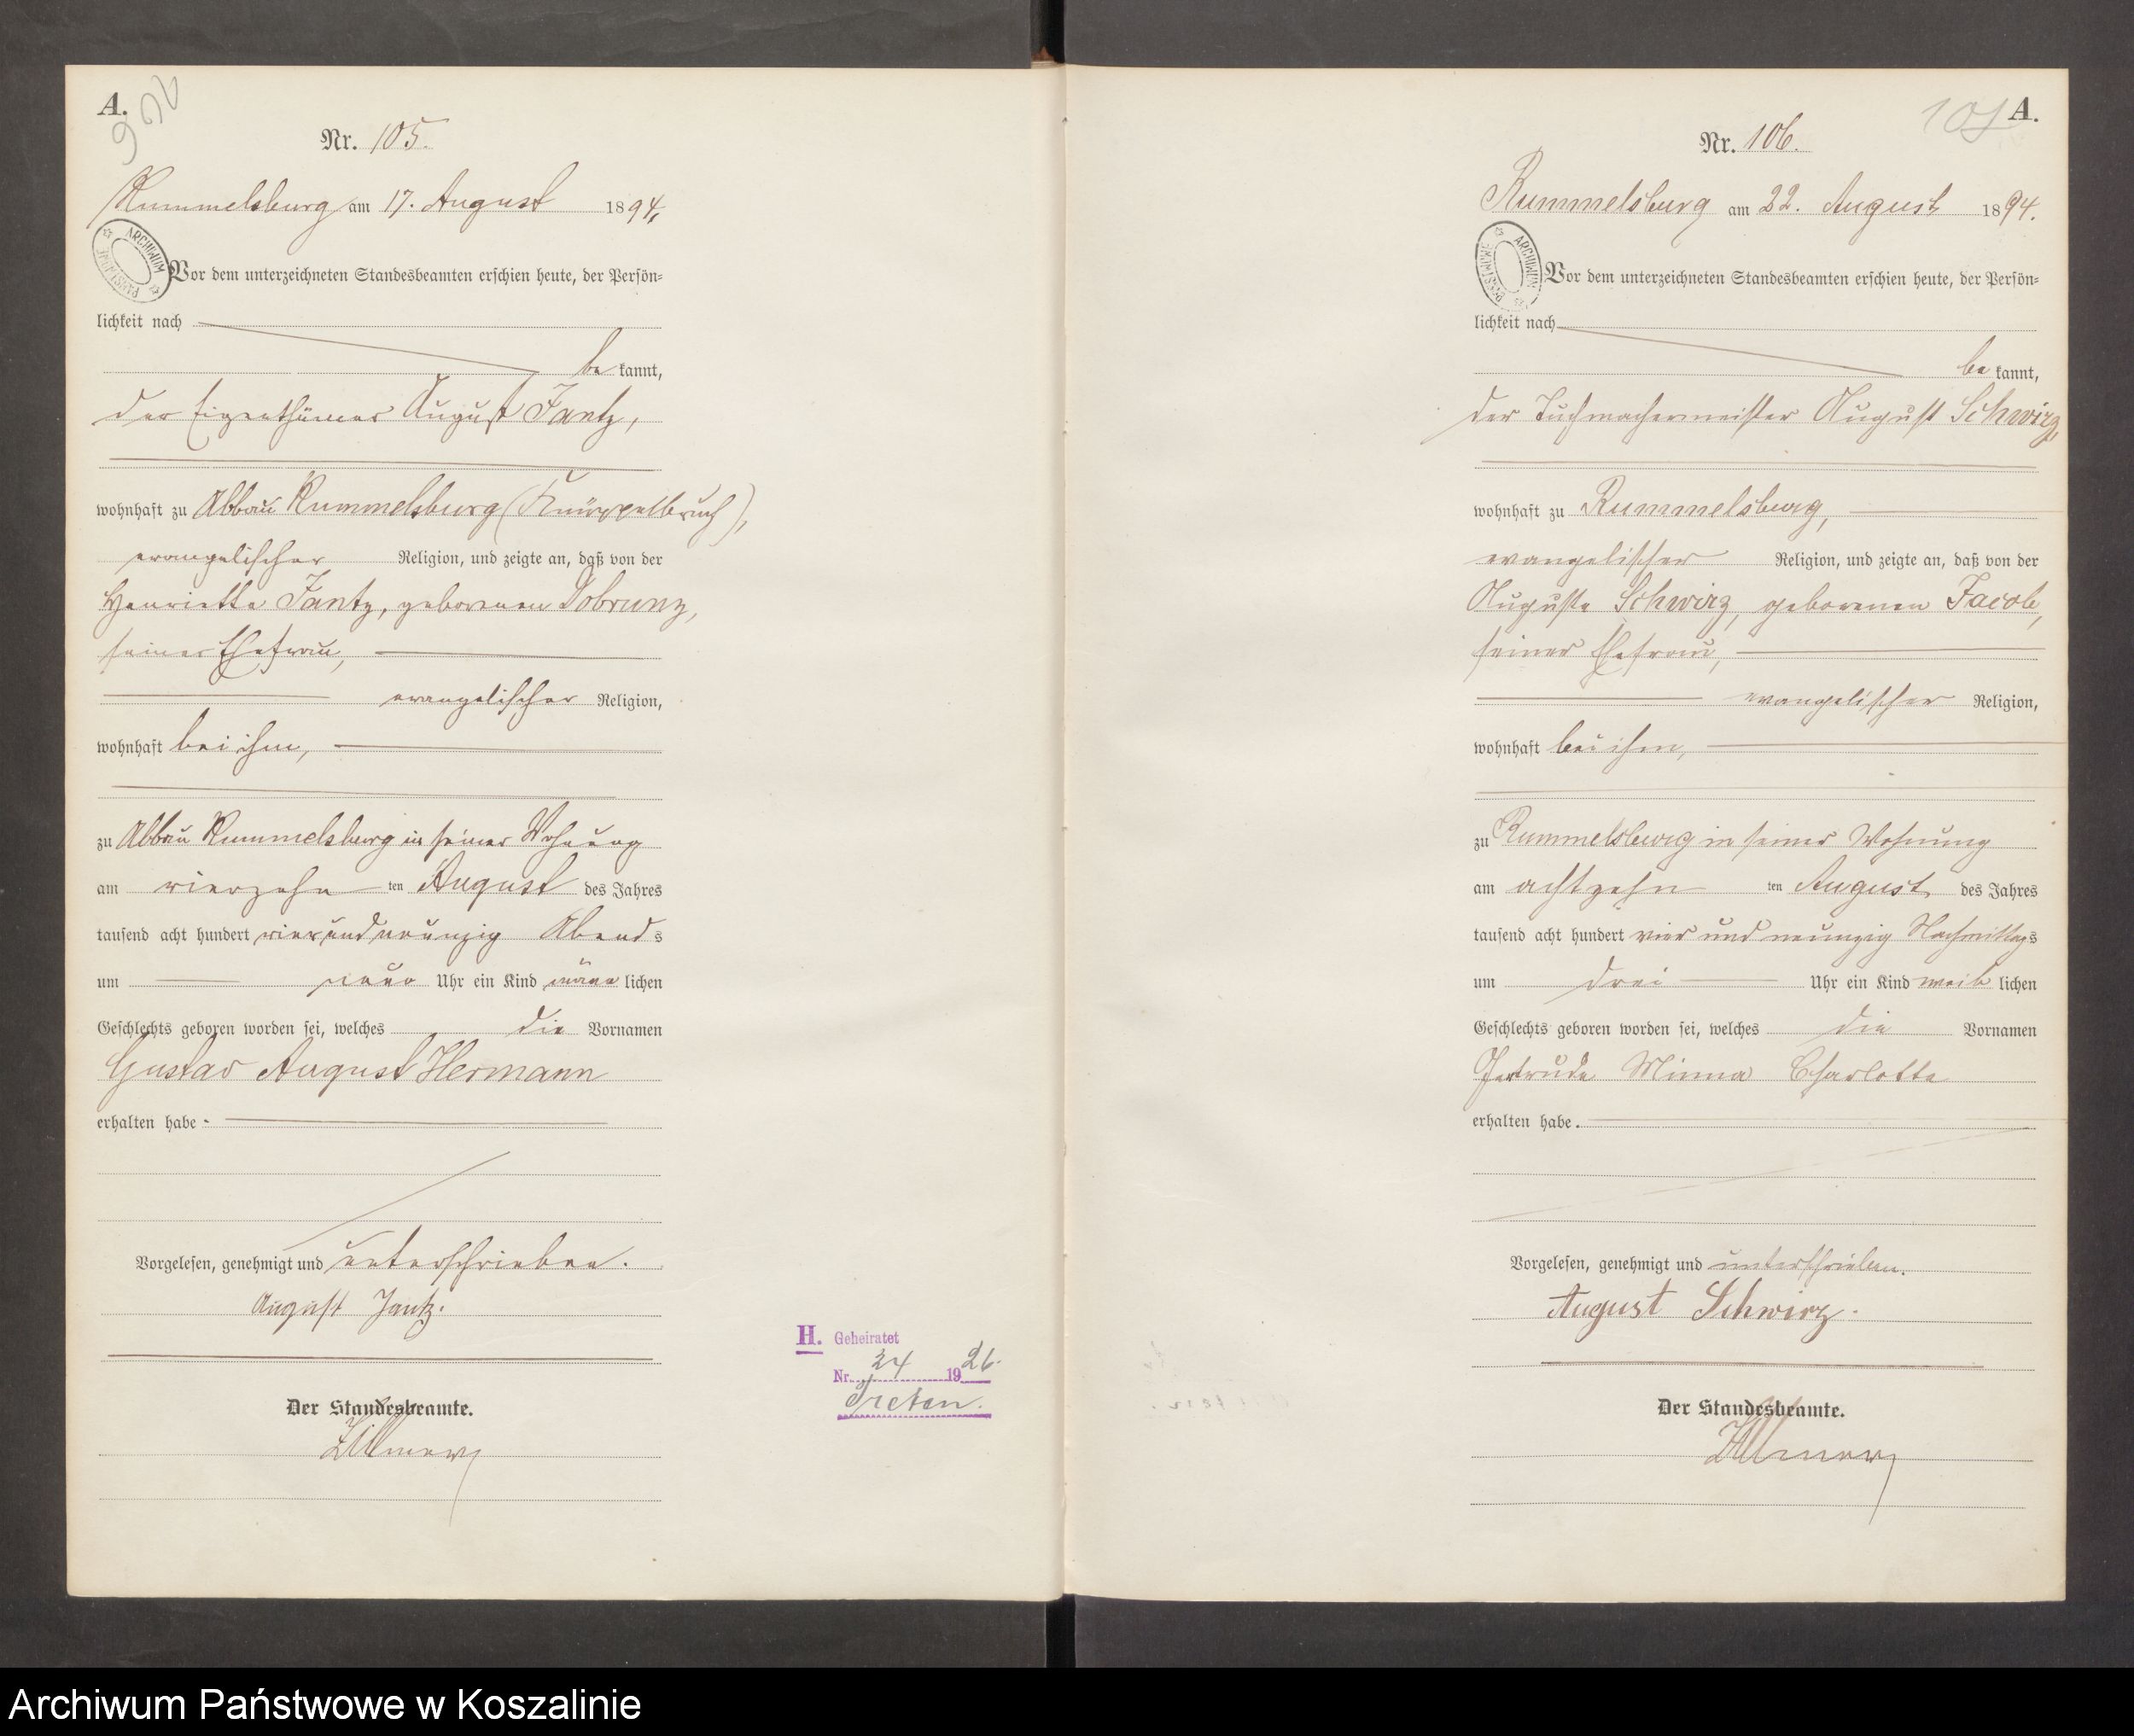 A.
Nr. 105.
Rummelsburg am 17. August 1894.
ARCHIWUM PAŃSTWOWE
Vor dem unterzeichneten Standesbeamten erschien heute, der Persön=
lichkeit nach
be kannt,
der Eigenthümer August Jantz,
wohnhaft zu Abbau Rummelsburg (Knüppelbruch),
evangelischer Religion, und zeigte an, daß von der
Henriette Jantz, geborenen Dobrunz,
seiner Ehefrau,
evangelischer Religion,
wohnhaft bei ihm,
zu Abbau Rummelsburg in seiner Wohnung
am vierzehn ten August des Jahres
tausend acht hundert vierundneunzig Abends
um neun Uhr ein Kind männ lichen
Geschlechts geboren worden sei, welches die Vornamen
Gustav August Hermann
erhalten habe.
Vorgelesen, genehmigt und unterschrieben.
August Jantz.
Der Standesbeamte.
Zillmer
H. Geheiratet
Nr. 24 1926.
Treten.
A.
Nr. 106.
Rummelsburg am 22. August 1894.
ARCHIWUM PAŃSTWOWE
Vor dem unterzeichneten Standesbeamten erschien heute, der Persön=
lichkeit nach
be kannt,
der Tuchmachermeister August Schwirz,
wohnhaft zu Rummelsburg,
evangelischer Religion, und zeigte an, daß von der
Auguste Schwirz, geborenen Jacob,
seiner Ehefrau,
evangelischer Religion,
wohnhaft bei ihm,
zu Rummelsburg in seiner Wohnung
am achtzehn ten August des Jahres
tausend acht hundert vier und neunzig Nachmittags
um drei Uhr ein Kind weib lichen
Geschlechts geboren worden sei, welches die Vornamen
Gertrude Minna Charlotte
erhalten habe.
Vorgelesen, genehmigt und unterschrieben.
August Schwirz.
Der Standesbeamte.
Zillmer
Archiwum Państwowe w Koszalinie